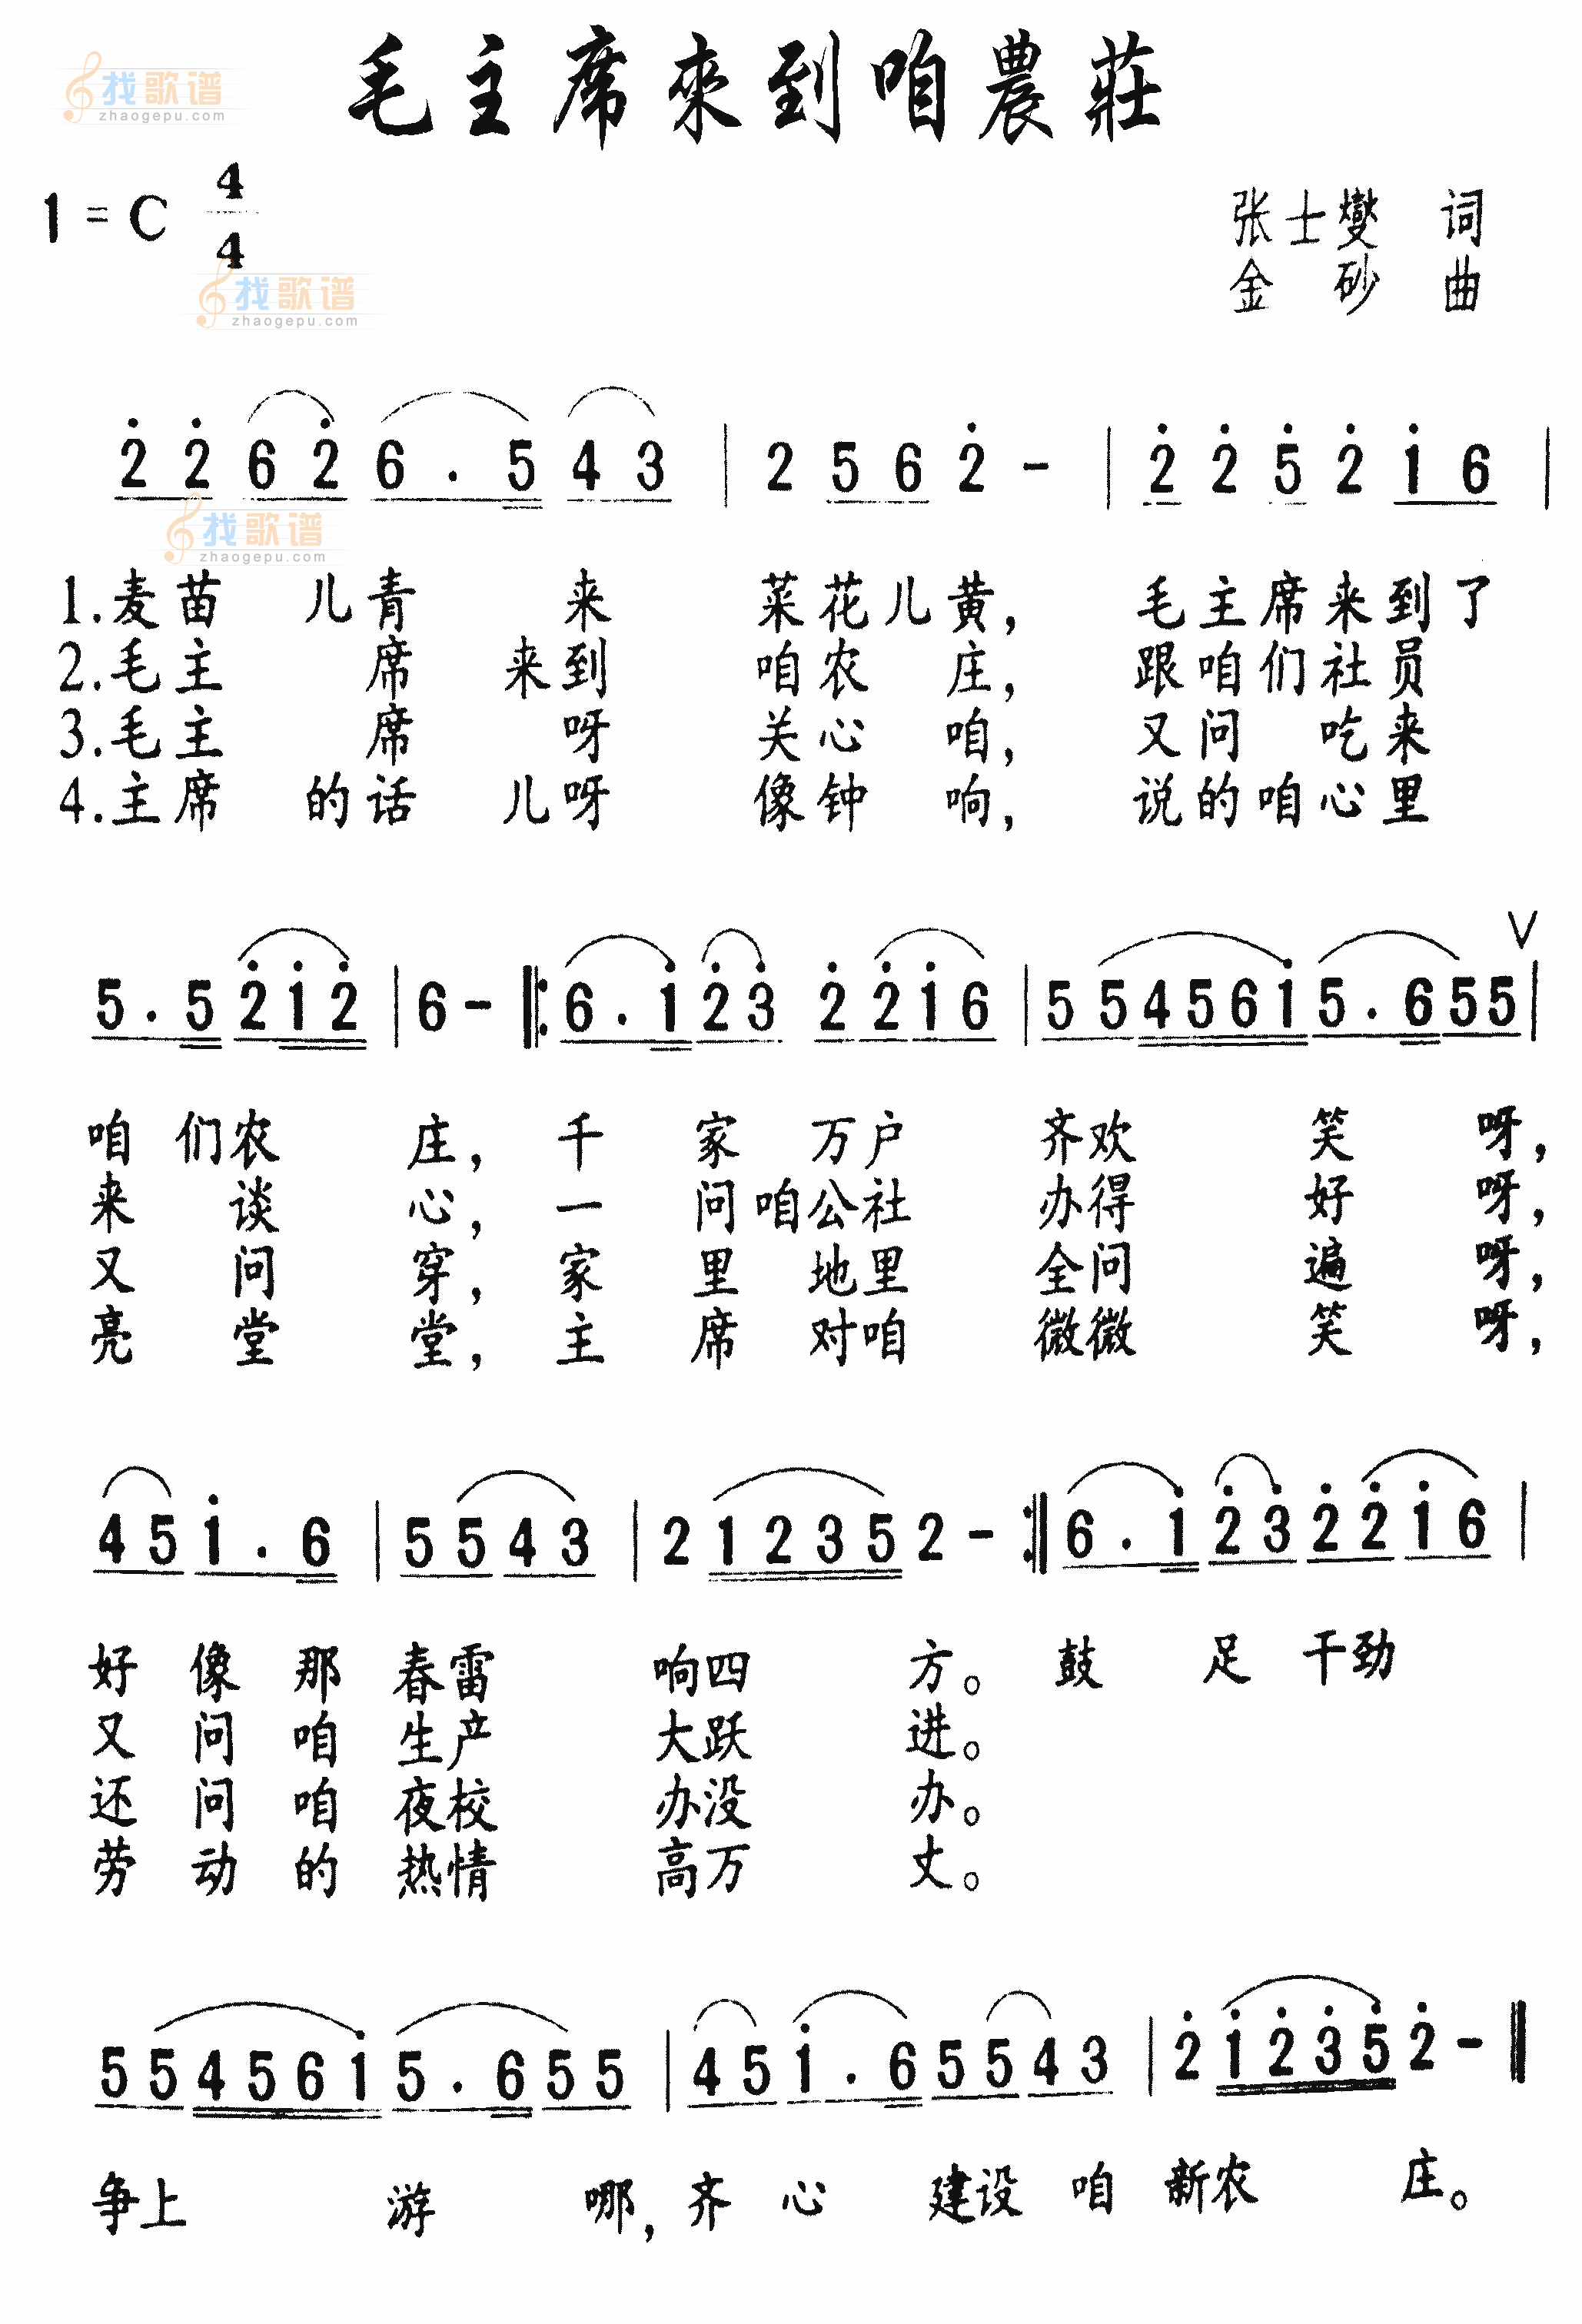 毛主席來到咱農莊
找歌谱
zhaogepu.com
1=C 4/4
张士燮 词
金砂 曲
找歌谱
zhaogepu.com
2̇ 2̇ 6 2̇ 6 . 5 4 3 | 2 5 6 2̇ - | 2̇ 2̇ 5̇ 2̇ 1̇ 6 |
找歌谱
zhaogepu.com
1.麦苗儿青来菜花儿黄,毛主席来到了
2.毛主席来到咱农庄,跟咱们社员
3.毛主席呀关心咱,又问吃来
4.主席的话儿呀像钟响,说的咱心里
5 . 5 2̇ 1̇ 2̇ | 6 - ‖: 6 . 1̇ 2̇ 3̇ 2̇ 2̇ 1̇ 6 | 5 5 4 5 6 1̇ 5 . 6 5 5 V |
咱们农庄,千家万户齐欢笑呀,
来谈心,一问咱公社办得好呀,
又问穿,家里地里全问遍呀,
亮堂堂,主席对咱微微笑呀,
4 5 1̇ . 6 | 5 5 4 3 | 2 1 2 3 5 2 - :‖ 6 . 1̇ 2̇ 3̇ 2̇ 2̇ 1̇ 6 |
好像那春雷响四方。鼓足干劲
又问咱生产大跃进。
还问咱夜校办没办。
劳动的热情高万丈。
5 5 4 5 6 1̇ 5 . 6 5 5 | 4 5 1̇ . 6 5 5 4 3 | 2̇ 1̇ 2̇ 3̇ 5̇ 2̇ - ‖
争上游哪,齐心建设咱新农庄。